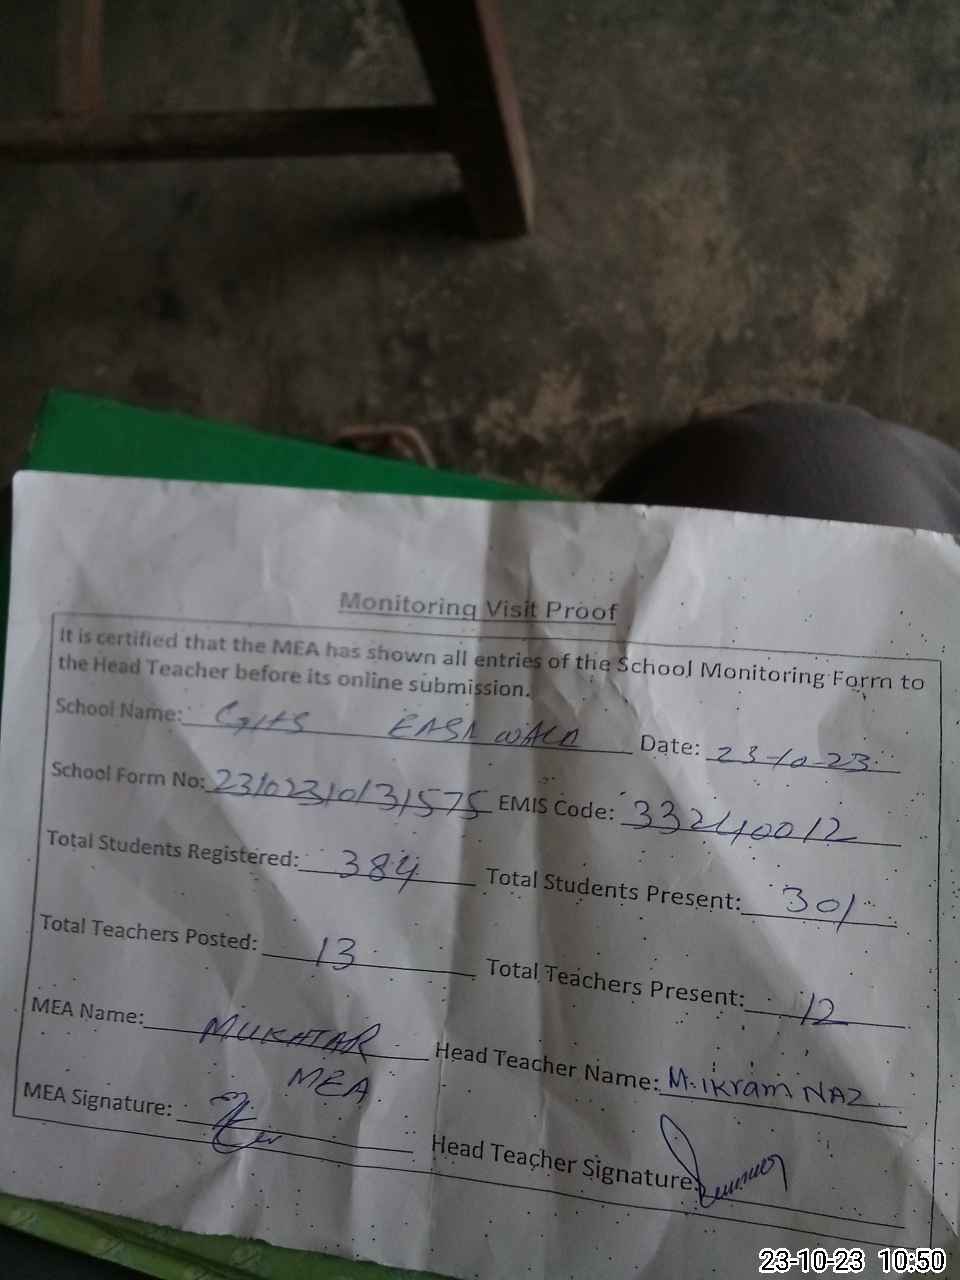 Monitoring Visit Proof
It is certified that the MEA has shown all entries of the School Monitoring Form to
the Head Teacher before its online submission.
School Name: GHS EASA WALA Date: 23-10-23
School Form No: 23102310131575 EMIS Code: 33240012
Total Students Registered: 384 Total Students Present: 301
Total Teachers Posted: 13 Total Teachers Present: 12
MEA Name: MUKHTAR Head Teacher Name: M. ikram NAZ
MEA
MEA Signature: Head Teacher Signature:
23-10-23 10:50